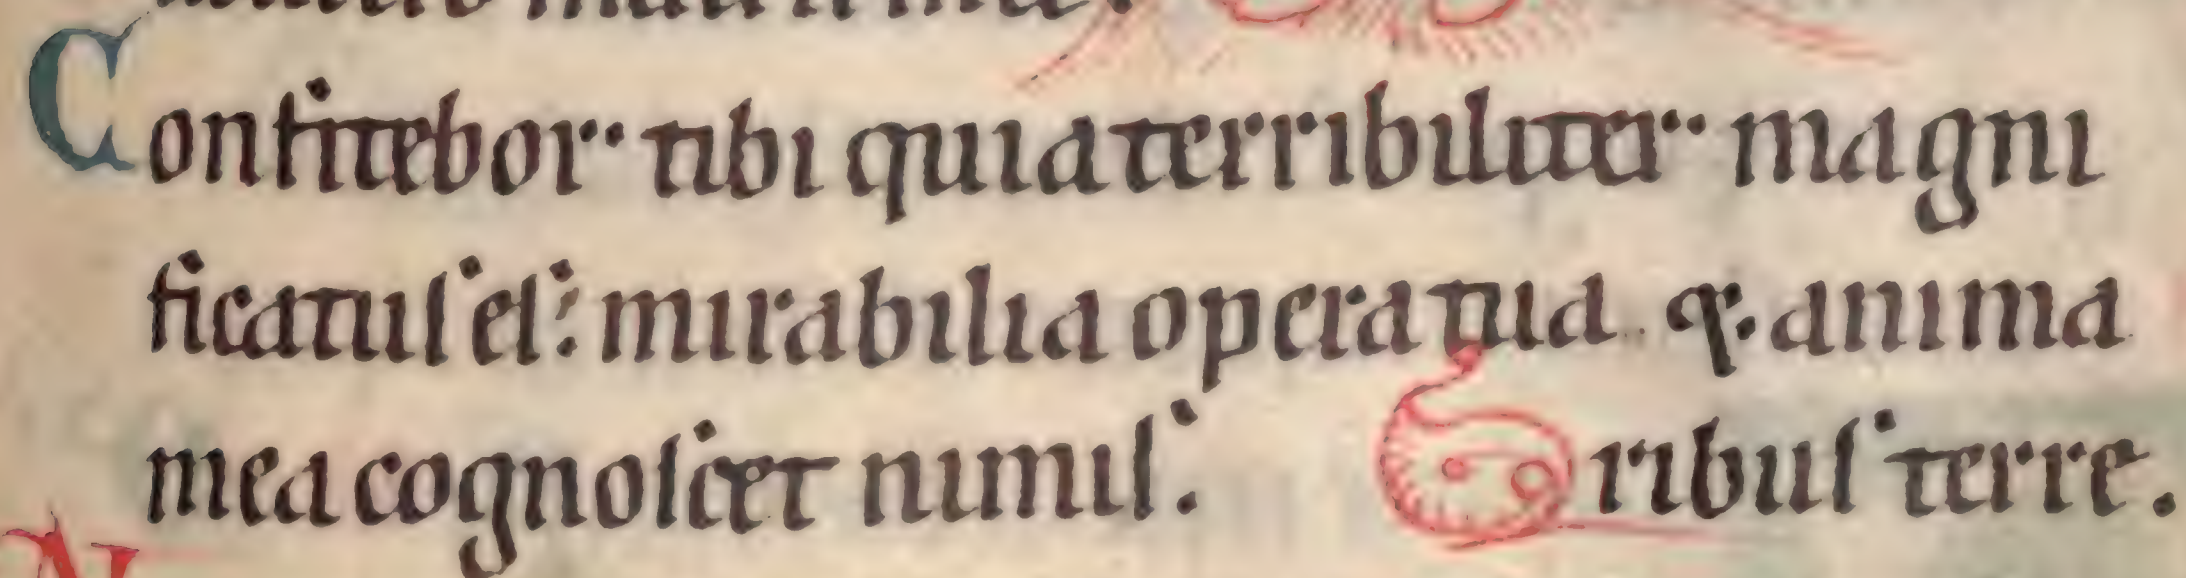 Confitebor· tibi quia terribiliter· magni
ficatus es: mirabilia opera tua ꝗ· anima
mea cognoscet nimis. oribus terre.